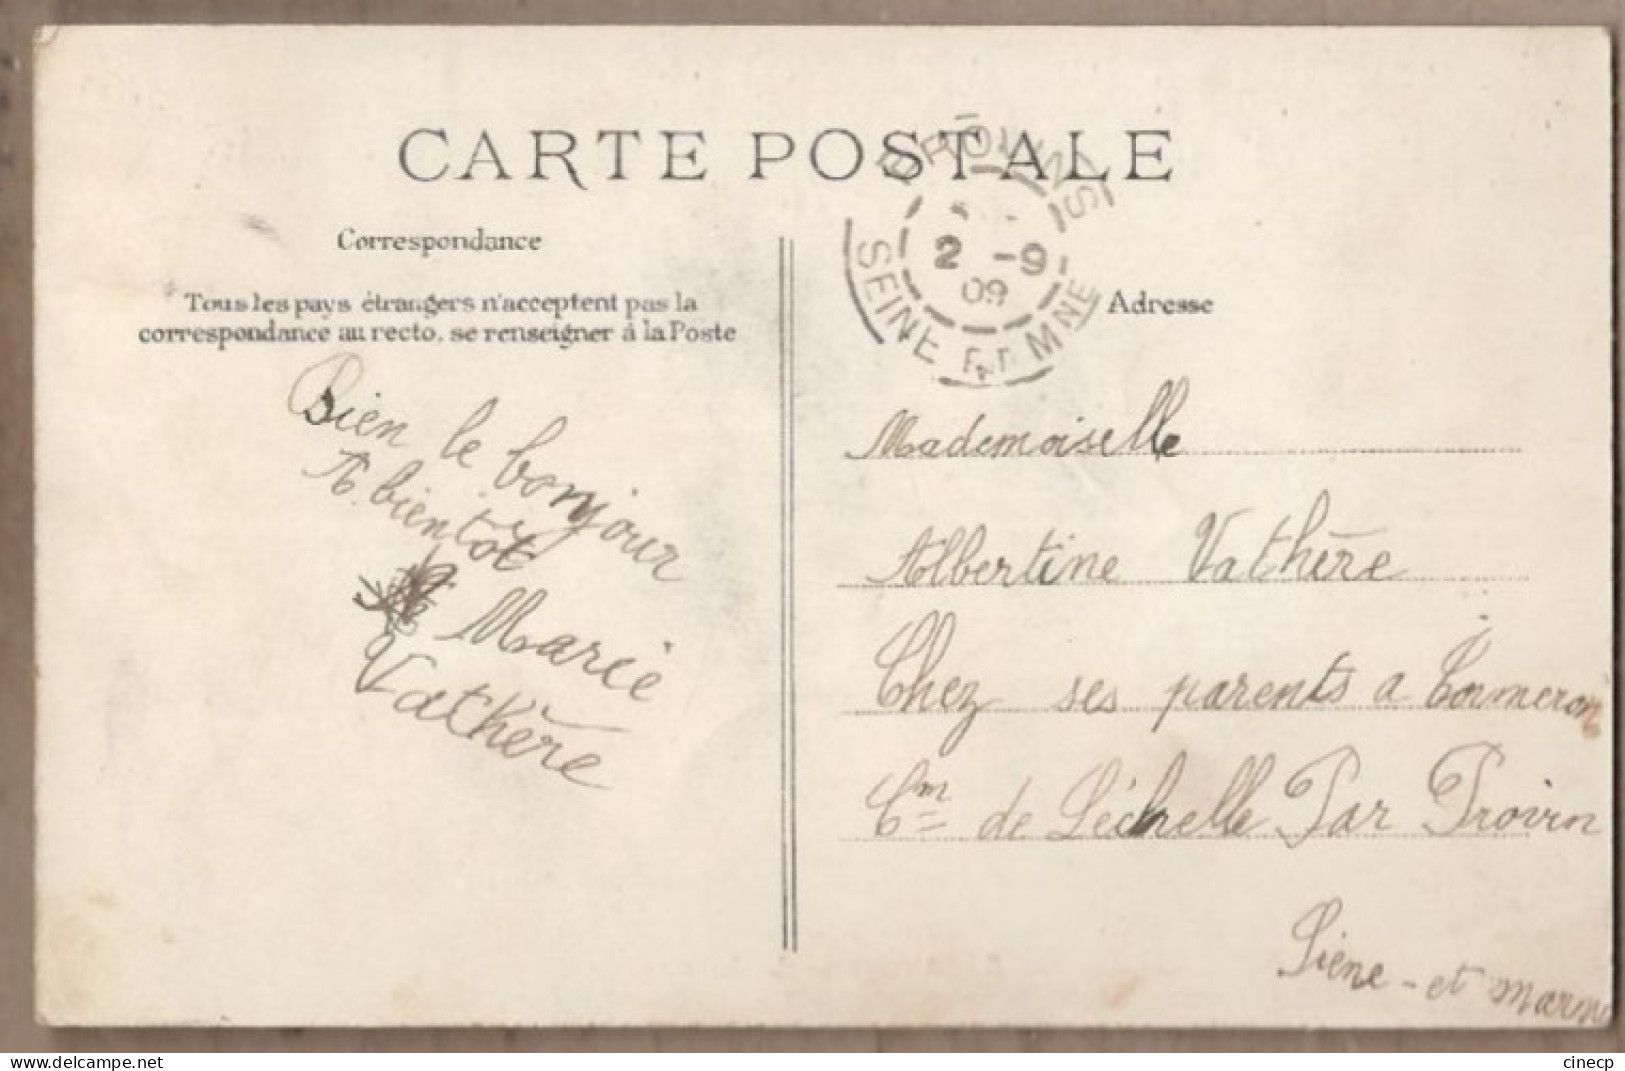 CARTE POSTALE
Correspondance
Tous les pays étrangers n'acceptent pas la
correspondance au recto, se renseigner à la Poste
Bien le bonjour
A. bientôt
Marie
Vathère
PROVINS
2 -9
09
SEINE ET MNE
Adresse
Mademoiselle
Albertine Vathère
Chez ses parents a
Cm de Léchelle Par Provin
Siene - et Marne
cinecp